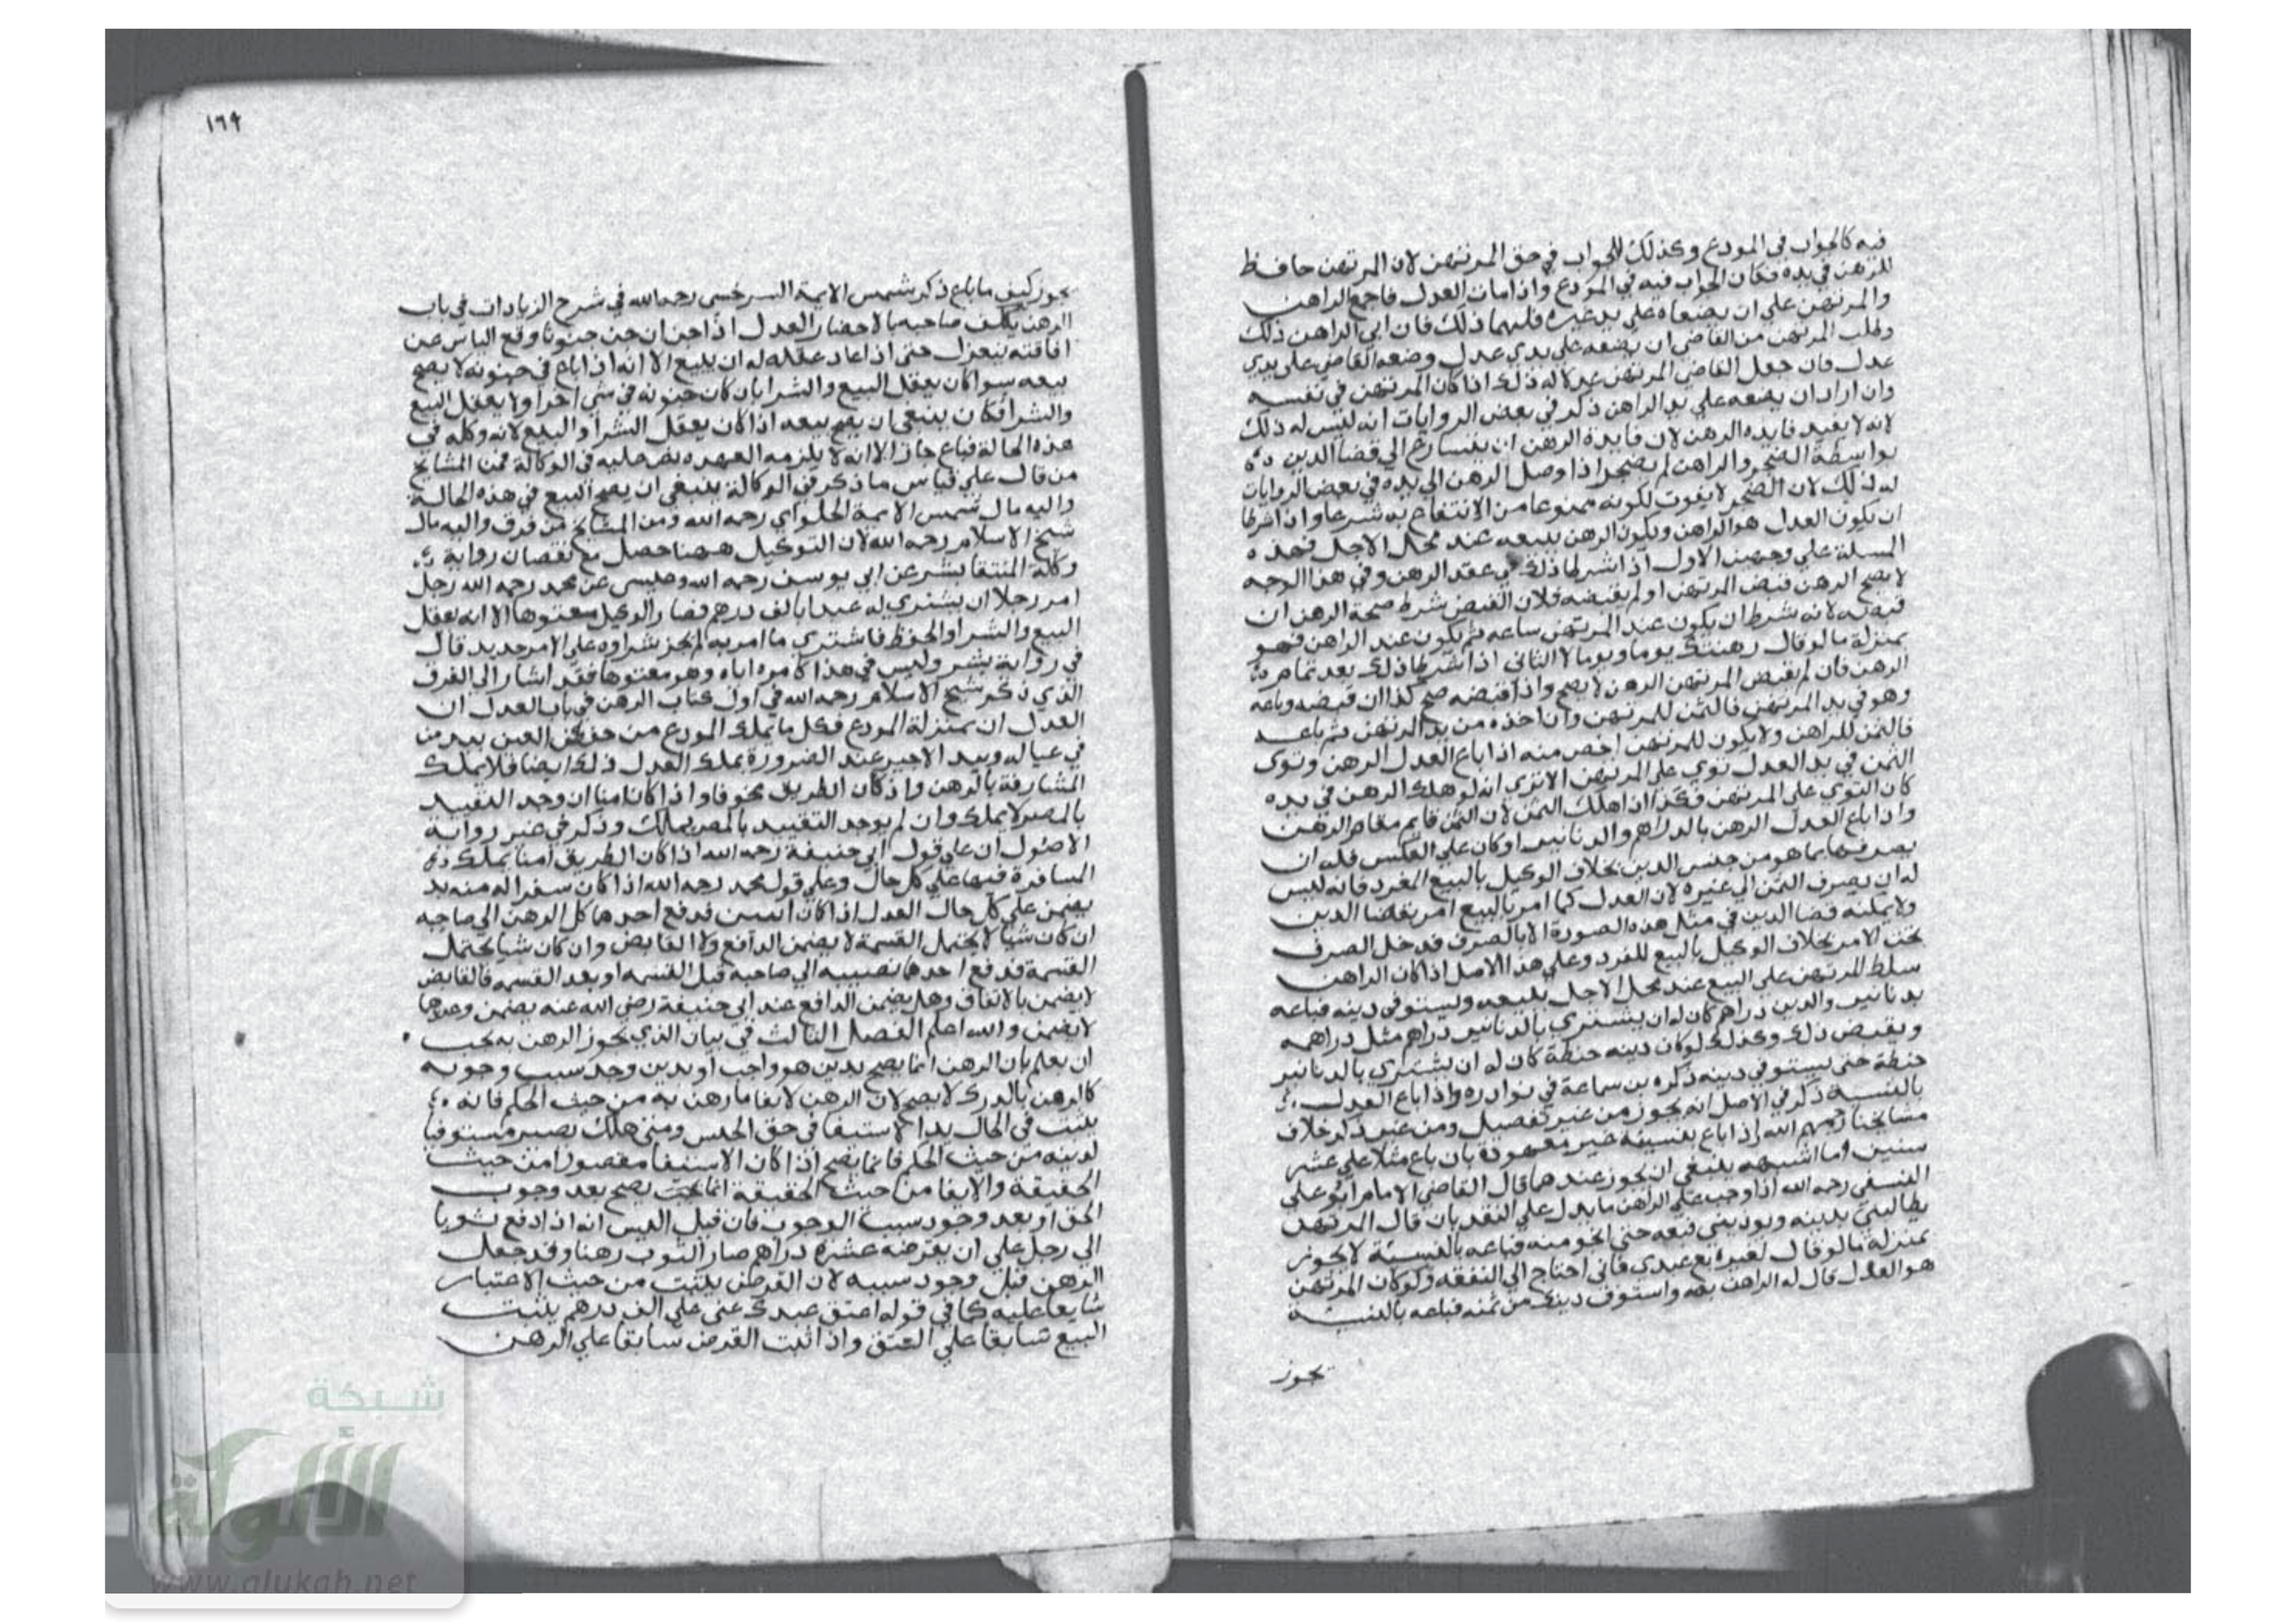 فيه كالجواب في المودع وكذلك الجواب في حق المرتهن لان المرتهن حافظ
للرهن في يده فكان الجواب فيه في المودع واذا مات العدل فاجمع الراهن
والمرتهن علي ان يضعاه علي يد غيره فلهما ذلك فان ابي الراهن ذلك
وطلب المرتهن من القاضي ان يضعه علي يدي عدل وضعه القاضي علي يدي
عدل فان جعل القاضي المرتهن عدلا له ذلك اذا كان المرتهن في نفسه
وان اراد ان يضعه علي يد الراهن ذكر في بعض الروايات انه ليس له ذلك
لانه لا يفيد فايدة الرهن لان فايدة الرهن ان يتسارع الي قضا الدين
بواسطة الضجر والراهن لم يضجر اذا وصل الرهن الي يده في بعض الروايات
له ذلك لان الضجر لا يفوت لكونه ممنوعا من الانتفاع به شرعا واذا شرطا
ان يكون العدل هو الراهن ويكون الرهن يبيعه عند محل الاجل فهذه
المسلة علي وجهين الاول اذا شرطا ذلك في عقد الرهن وفي هذا الوجه
لا يصح الرهن قبض المرتهن او لم يقبضه فلان القبض شرط صحة الرهن ان
قبضه لانه شرط ان يكون عند المرتهن ساعه ثم يكون عند الراهن فهو
بمنزلة ما لو قال رهنتك يوما ويوما لا الثاني اذا شرطا ذلك بعد تمام
الرهن فان لم يقبض المرتهن الرهن لا يصح واذا قبضه صح كذا ان قبضه وباعه
وهو في يد المرتهن فالثمن للمرتهن وان اخذه من يد المرتهن ثم باعه
فالثمن للراهن ولا يكون للمرتهن اخص منه اذا باع العدل الرهن وتوي
الثمن في يد العدل توي علي المرتهن الا تري انه لو هلك الرهن في يده
كان التوي علي المرتهن فكذا اذا هلك الثمن لان الثمن قايم مقام الرهن
واذا باع العدل الرهن بالدراهم والدنانير او كان علي العكس فله ان
يصرفها بما هو من جنس الدين بخلاف الوكيل بالبيع المفرد فانه ليس
له ان يصرف الثمن الي غيره لان العدل كما امر بالبيع امر بقضا الدين
ولا يمكنه قضا الدين في مثل هذه الصورة الا بالصرف فدخل الصرف
تحت الامر بخلاف الوكيل بالبيع المفرد وعلي هذا الاصل اذا كان الراهن
سلط المرتهن علي البيع عند محل الاجل يبيعه ويستوفي دينه فباعه
بدنانير والدين دراهم كان له ان يشتري بالدنانير دراهم مثل دراهمه
ويقبض ذلك وكذلك لو كان دينه حنطة كان له ان يشتري بالدنانير
حنطة حتي يستوفي دينه ذكره بن سماعة في نوادره واذا باع العدل
بالنسية ذكر في الاصل انه يجوز من غير تفصيل ومن غير ذكر خلاف
مشايخنا رحمهم الله اذا باع بنسيئة غير معهودة بان باع مثلا علي عشر
سنين اما اشبهه ينبغي ان يجوز عندهما قال القاضي الامام ابو علي
النسفي رحمه الله اذا وجب علي الراهن ما يدل علي النقد بان قال المرتهن
يطالبني بدينه ويوديني فبعه حتي انجو منه فباعه بالنسيئة لا يجوز
بمنزلة ما لو قال لغيره بع عبدي فاني احتاج الي النفقه ولو كان المرتهن
هو العدل قال له الراهن بعه واستوف دينك من ثمنه فباعه بالنسية
يجوز
١٦٩
يجوز كيف ما باع ذكر شمس الايمة السرخسي رحمه الله في شرح الزيادات في باب
الرهن يكلف صاحبه بالاحضار العدل اذا جن ان جن جنونا وقع الياس عن
افاقته ينعزل حتي اذا عاد عقله له ان يبيع الا انه اذا باع في جنونه لا يصح
بيعه سوا كان يعقل البيع والشرا بان كان جنونه في شي اخر او لا يعقل البيع
والشرا فكان ينبغي ان يصح بيعه اذا كان يعقل الشرا والبيع لانه وكله في
هذه الحالة فباع جاز الا انه لا يلزمه العهده نص عليه في الوكالة فمن المشايخ
من قال علي قياس ما ذكر في الوكالة ينبغي ان يصح البيع في هذه الحالة
واليه مال شمس الايمة الحلواي رحمه الله ومن المشايخ من فرق واليه مال
شيخ الاسلام رحمه الله لان التوكيل ههنا حصل مع نقصان رواية
وكالة المنتقا بشر عن ابي يوسف رحمه الله وفليس عن محمد رحمه الله رجل
امر رجلا ان يشتري له عبدا بالف درهم فصار الوكيل معتوها الا انه يعقل
البيع والشرا والحفظ فاشتري ما امر به لم يجز شراوه علي الامر جديد قال
في رواية بشر وليس في هذا كامره اياه وهو معتوها فقد اشار الي الفرق
الذي ذكر شيخ الاسلام رحمه الله في اول كتاب الرهن في باب العدل ان
العدل ان بمنزلة المودع فكل ما يملك المودع من حفظ العين بيد من
في عياله وبيد الاجير عند الضرورة يملك العدل ذلك ايضا فلا يملك
المشارفة بالرهن واذ كان الطريق مخوفا واذا كان امنا ان وجد التقييد
بالمصر لا يملك وان لم يوجد التقييد بالمصر يملك وذكر في غير رواية
الاصول ان علي قول ابي حنيفة رحمه الله اذا كان الطريق امنا يملك
المسافرة فيها علي كل حال وعلي قول محمد رحمه الله اذا كان سفرا له منه بد
يضمن علي كل حال العدل اذا كان اثنين فدفع احدهما كل الرهن الي صاحبه
ان كان شيا لا يحتمل القسمة لا يضمن الدافع ولا القابض وان كان شيا يحتمل
القسمة فدفع احدهما نصيبه الي صاحبه قبل القسمه او بعد القسمه فالقابض
لا يضمن بالاتفاق وهل يضمن الدافع عند ابي حنيفة رضي الله عنه يضمن وعندهما
لا يضمن والله اعلم الفصل الثالث في بيان الذي يجوز الرهن به يجب
ان يعلم بان الرهن انما يصح بدين هو واجب او بدين وجد سبب وجوبه
كالرهن بالدرك لا يصح لان الرهن لايفا ما رهن به من حيث الحكم فانه
يثبت في الحال يد الاستيفا في حق الحبس ومتي هلك يصير مستوفيا
لدينه من حيث الحكم فانما يصح اذا كان الاستيفا مقصورا من حيث
الحقيقة والايفا من حيث الحقيقة انما يصح بعد وجوب
الحق او بعد وجود سبب الوجوب فان قيل اليس انه اذا دفع ثوبا
الي رجل علي ان يقرضه عشرة دراهم صار الثوب رهنا وقد جعل
الرهن قبل وجود سببه لان القرض يثبت من حيث الاعتبار
سابقا عليه كما في قوله اعتق عبدك عني علي الف درهم يثبت
البيع سابقا علي العتق واذا ثبت القرض سابقا علي الرهن
شبكة
الألوكة
www.alukah.net